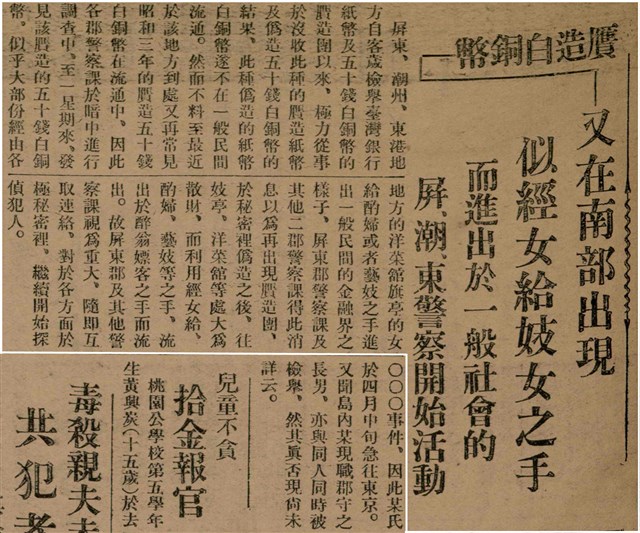 贋造白銅幣
又在南部出現
似經女給妓女之手
而進出於一般社會的
屏、潮、東警察開始活動
屏東、潮州、東港地
方自客歲檢舉臺灣銀行
紙幣及五十錢白銅幣的
贋造團以來、極力從事
於沒收此種的贋造紙幣
及僞造五十錢白銅幣的
結果、此種僞造的紙幣
白銅幣遂不在一般民間
流通。然而不料至最近
於該地方到處又再常見
昭和三年的贋造五十錢
白銅幣在流通中、因此
各郡警察課於暗中進行
調查中、至一星期來、發
見該贋造的五十錢白銅
幣。似乎大部份經由各
地方的洋菜舘旗亭的女
給酌婦或者藝妓之手進
出一般民間的金融界之
樣子、屏東郡警察課及
其他二郡警察課得此消
息以爲再出現贋造團、
於秘密裡僞造之後、往
妓亭、洋菜舘等處大爲
散財、而利用經女給、
酌婦、藝妓等之手、流
出於醉翁嫖客之手而流
出。故屏東郡及其他警
察課視爲重大、隨即互
取連絡、對於各方面於
極秘密裡、繼續開始探
偵犯人。
〇〇〇事件、因此某氏
於四月中旬急往東京。
又聞島內某現職郡守之
長男、亦與同人同時被
檢舉、然其眞否現尙未
詳云。
兒童不貪
拾金報官
桃園公學校第五學年
生黃興炭(十五歲)於去
毒殺親夫
共犯者